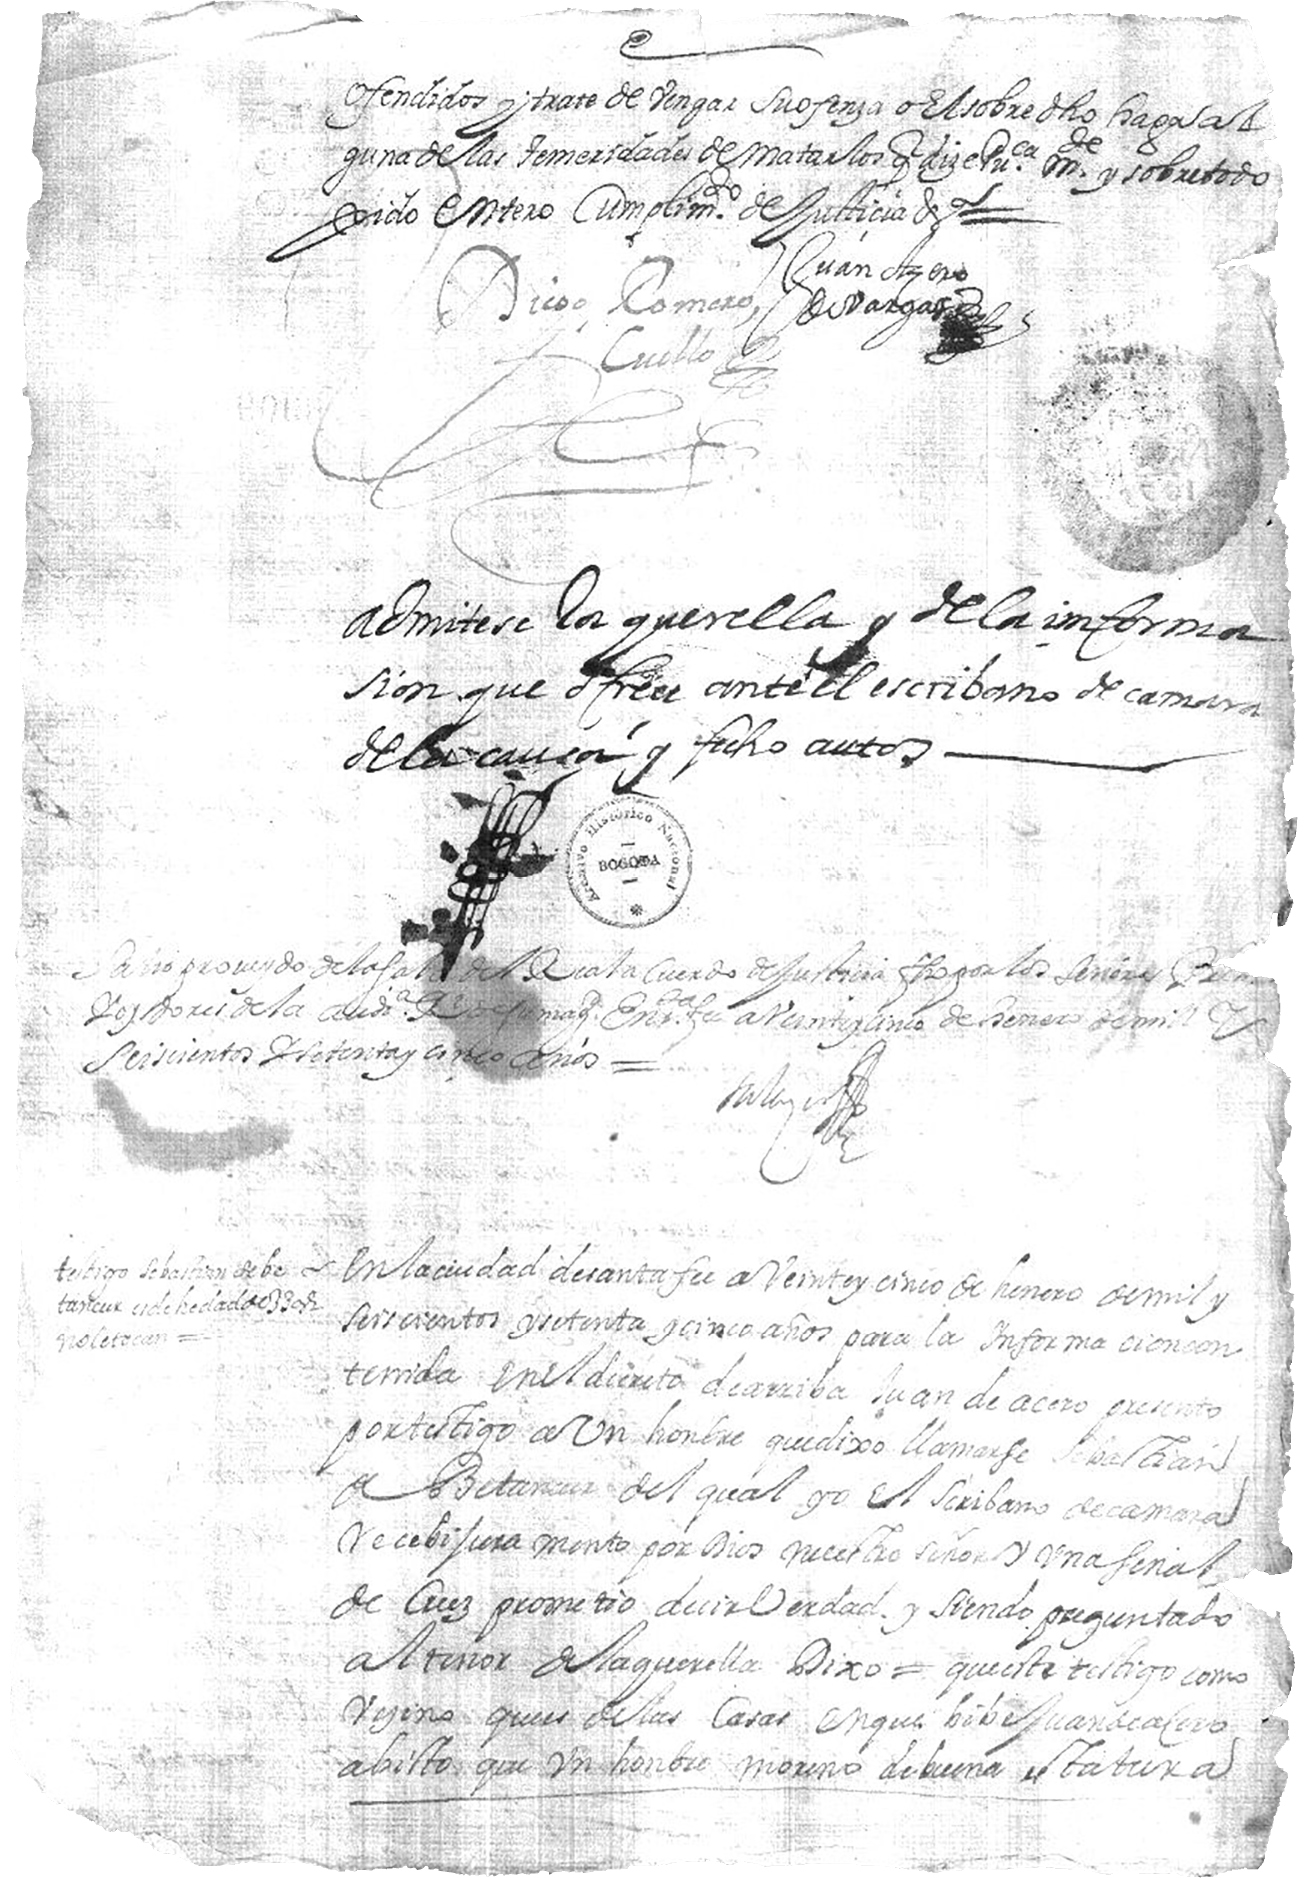 ofendidos y trate de Vengar Su ofenza o El sobre dho haga al
guna de las temeridades de matarlos q dize Pu.ca m.de y sobre todo
pido Entero Cumplim.to de Justicia &
Diego Romero
Cuello
Juan Azero
de Vargas
admitese la querella y de la informa
sion que ofrece ante el escribano de camara
de la causa y fecho autos
Archivo Histórico Nacional
BOGOTA
proueydo de la sala del Real acuerdo de Justicia fho por los Señores
Oydores de la audi.a R.l de su mag.d En S.ta fee a Veinte y sinco de henero de mill y
Seiscientos y setenta y cinco años =
testigo Sebastian de be
tancur es de hedad de 33 a
no le tocan =
En la ciudad de santa fee a Veinte y cinco de henero de mil y
seiscientos y setenta y cinco años para la Informa cion con
tenida En El decreto de arriba Juan de acero presento
por testigo a Un honbre que dixo llamarse Sebastian
de Betancur del qual yo El Scribano de camara
recebi Jura mento por Dios nuestro señor Y Una senal
de Cruz prometio decir Verdad y siendo preguntado
al tenor de la querella Dixo = que este testigo como
Vezino que es de las Casas en que bibe Juan de acero
a bisto que Un honbre moreno de buena estatura